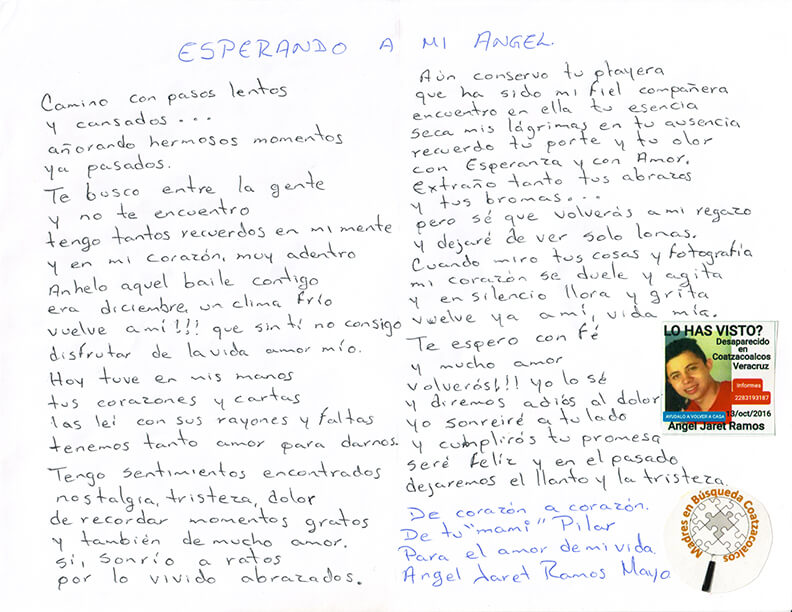 ESPERANDO A MI ANGEL.
Camino con pasos lentos
y cansados...
añorando hermosos momentos
ya pasados.
Te busco entre la gente
y no te encuentro
tengo tantos recuerdos en mi mente
y en mi corazón, muy adentro
Anhelo aquel baile contigo
era diciembre, un clima frío
vuelve a mí!!! que sin ti no consigo
disfrutar de la vida amor mío.
Hoy tuve en mis manos
tus corazones y cartas
las leí con sus rayones y faltas
tenemos tanto amor para darnos.
Tengo sentimientos encontrados
nostalgia, tristeza, dolor
de recordar momentos gratos
y también de mucho amor.
Sí, sonrío a ratos
por lo vivido abrazados.
Aún conservo tu playera
que ha sido mi fiel compañera
encuentro en ella tu esencia
seca mis lágrimas en tu ausencia
recuerdo tu porte y tu olor
con Esperanza y con Amor.
Extraño tanto tus abrazos
y tus bromas...
pero sé que volverás a mi regazo
y dejaré de ver solo lonas.
Cuando miro tus cosas y fotografía
mi corazón se duele y agita
y en silencio llora y grita
vuelve ya a mí, vida mía.
Te espero con fé
y mucho amor
volverás!!! yo lo sé
y diremos adiós al dolor
yo sonreiré a tu lado
y cumplirás tu promesa
seré feliz y en el pasado
dejaremos el llanto y la tristeza.
De corazón a corazón.
De tu "mami" Pilar
Para el amor de mi vida.
Angel Jaret Ramos Mayo
LO HAS VISTO?
Desaparecido
en
Coatzacoalcos
Veracruz
Informes
2283193187
AYUDALO A VOLVER A CASA
13/oct/2016
Angel Jaret Ramos
Madres en Búsqueda Coatzacoalcos